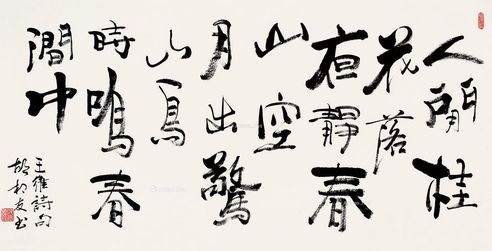 人閒桂
花落
夜靜春
山空
月出驚
山鳥
時鳴春
澗中
王維詩句
胡友书